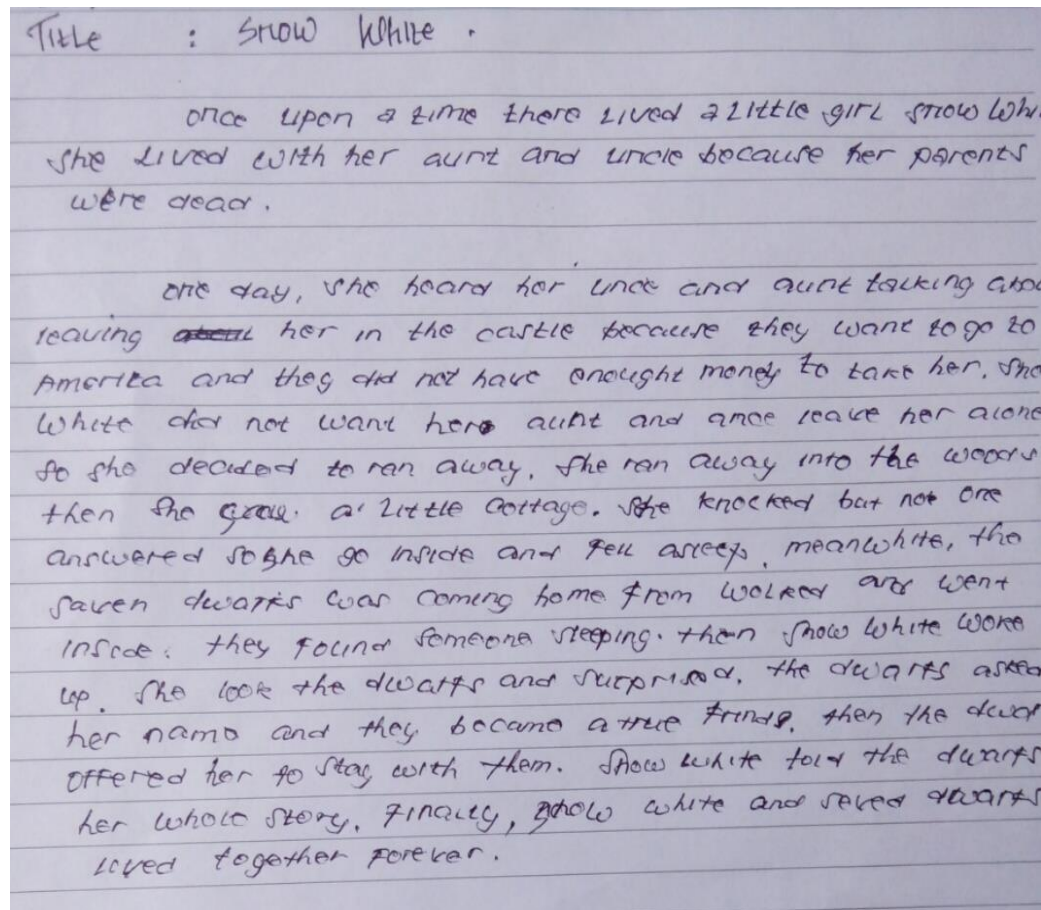 Title : Snow White .
once upon a time there Lived a Little girl snow Whi
she Lived with her aunt and uncle because her parents
were dead.
one day, she heard her unce and aunt talking abou
leaving her in the castle because they want to go to
America and they did not have enought money to take her. Sno
White did not want her aunt and ance leave her alone
so she decided to ran away. she ran away into the woods
then she a little Cottage. she knocked but not one
answered so she go inside and fell asleep. meanwhite, the
saven dwarfs was coming home from wolked and went
inside. they found someone sleeping. then snow white woke
up. she look the dwarfs and surprised. the dwarfs asked
her name and they became a true frinds. then the dwar
offered her to stay with them. snow white told the dwarfs
her whole story. Finally, snow white and seved dwarfs
lived together forever.